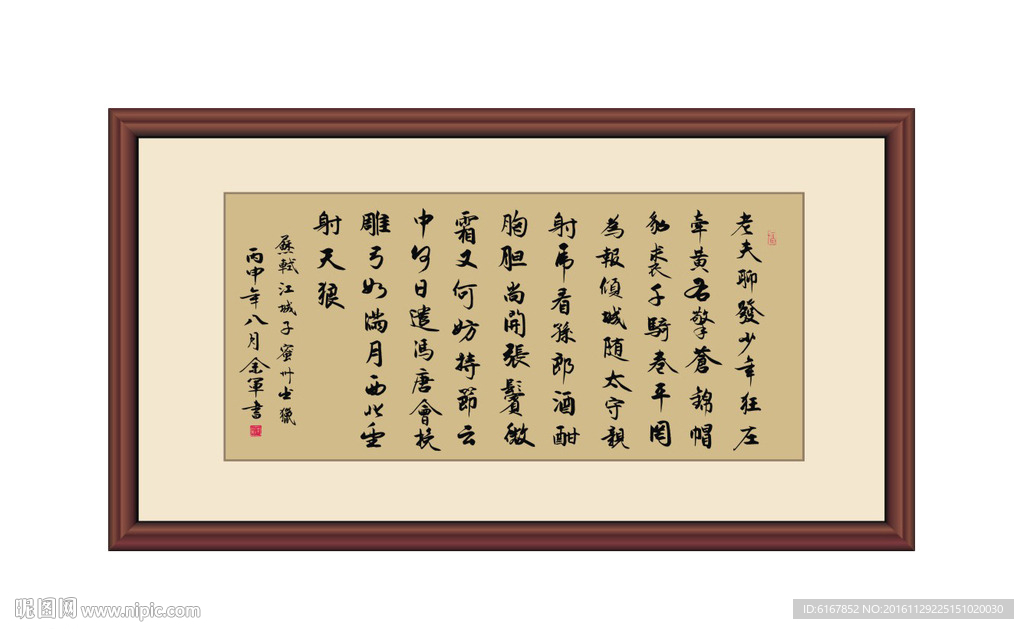 老夫聊發少年狂左
牽黃右擎蒼錦帽
貂裘千騎卷平岡
為報傾城随太守親
射虎看孫郎酒酣
胸胆尚開張鬢微
霜又何妨持節云
中何日遣馮唐會挽
雕弓如滿月西北望
射天狼
蘇軾江城子密州出獵
丙申年八月金軍書
昵图网 www.nipic.com
ID:6167852 NO:20161129225151020030